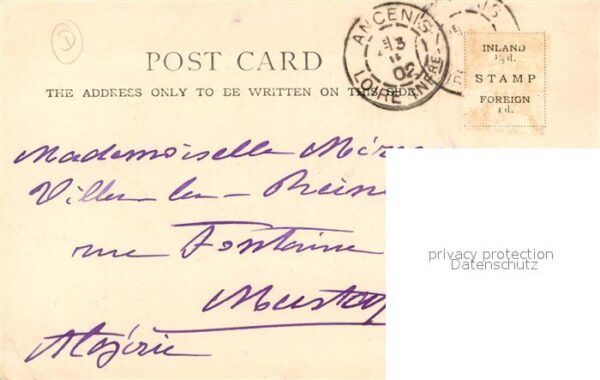 D
POST CARD
THE ADDRESS ONLY TO BE WRITTEN ON THIS SIDE
ANCENIS
LOIRE INFRE
02
INLAND
½d.
STAMP
FOREIGN
1d.
Mademoiselle
Villa la Reine
rue Fontaine
Algérie
privacy protection
Datenschutz